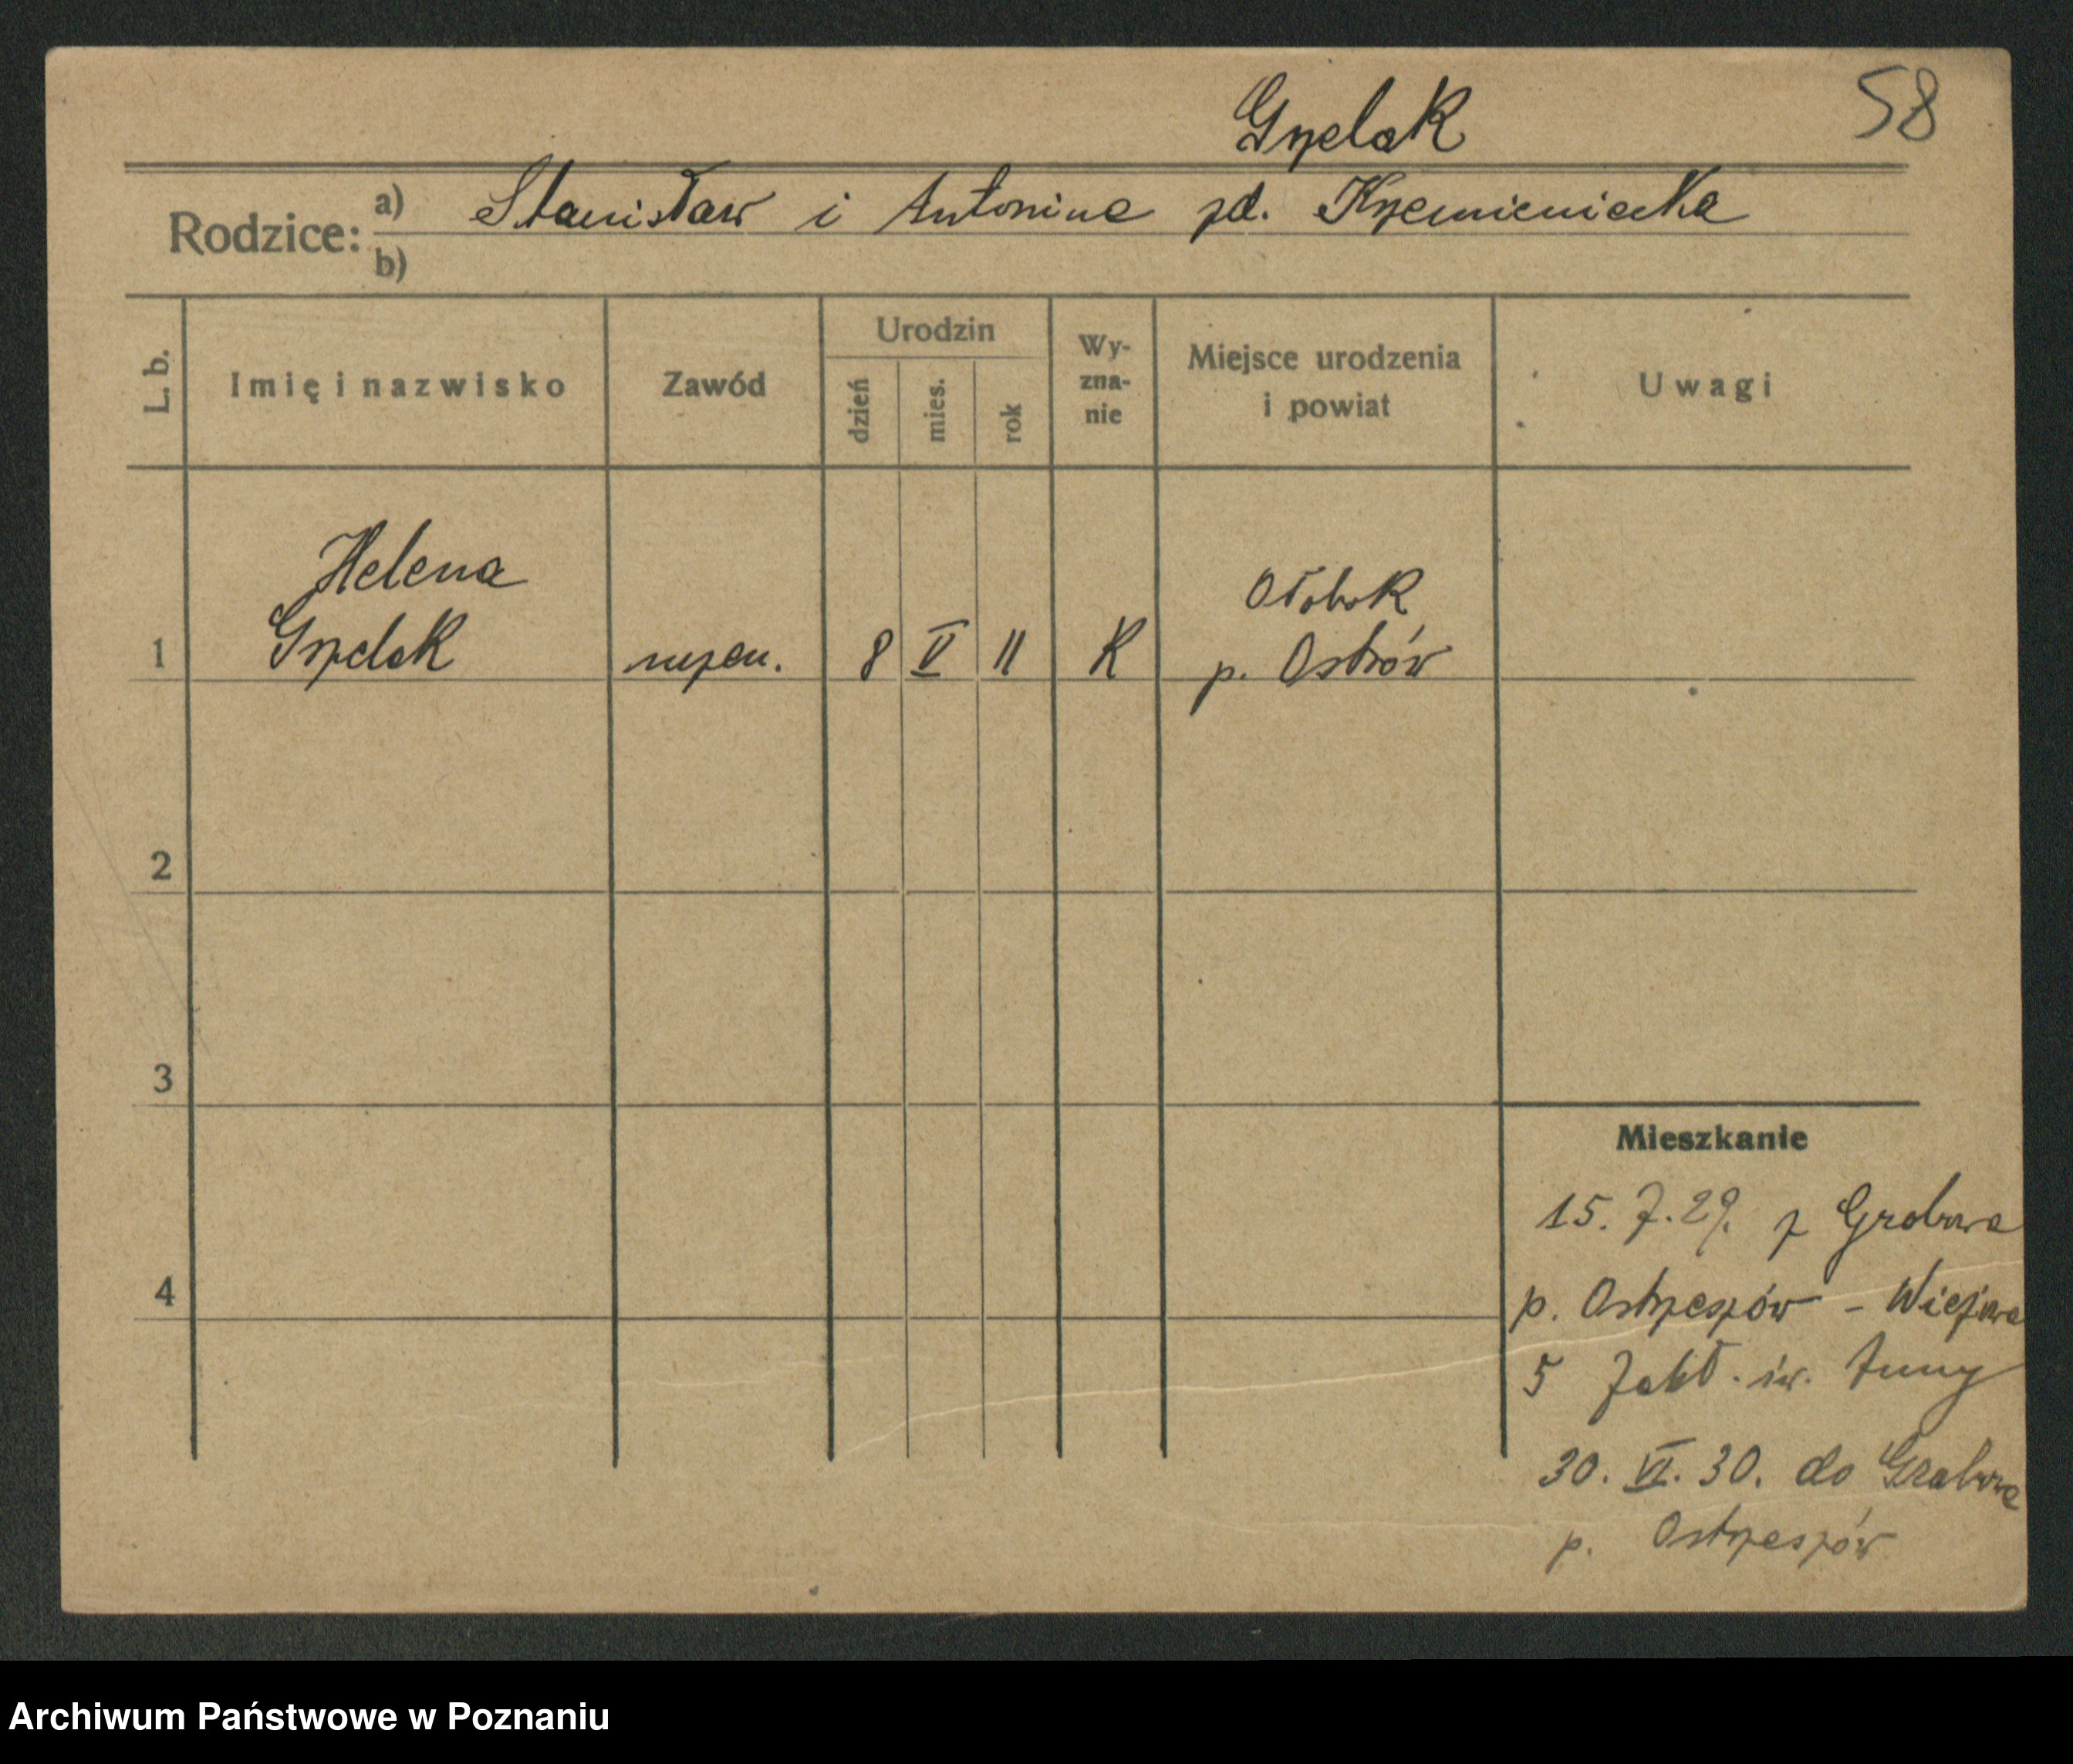 Grzelak
58
Rodzice: a) Stanisław i Antonina zd. Krzemieniecka
b)
L. b.
Imię i nazwisko
Zawód
Urodzin
dzień
mies.
rok
Wy-
zna-
nie
Miejsce urodzenia
i powiat
Uwagi
Helena
Ołobok
1 Grzelak uczen. 8 V 11 K p. Ostrów
2
3
4
Mieszkanie
15. 7. 29. z Grabowa
p. Ostrzeszów - Wiejska
5 Zakł. św. Anny
30. VI. 30. do Grabowa
p. Ostrzeszów
Archiwum Państwowe w Poznaniu